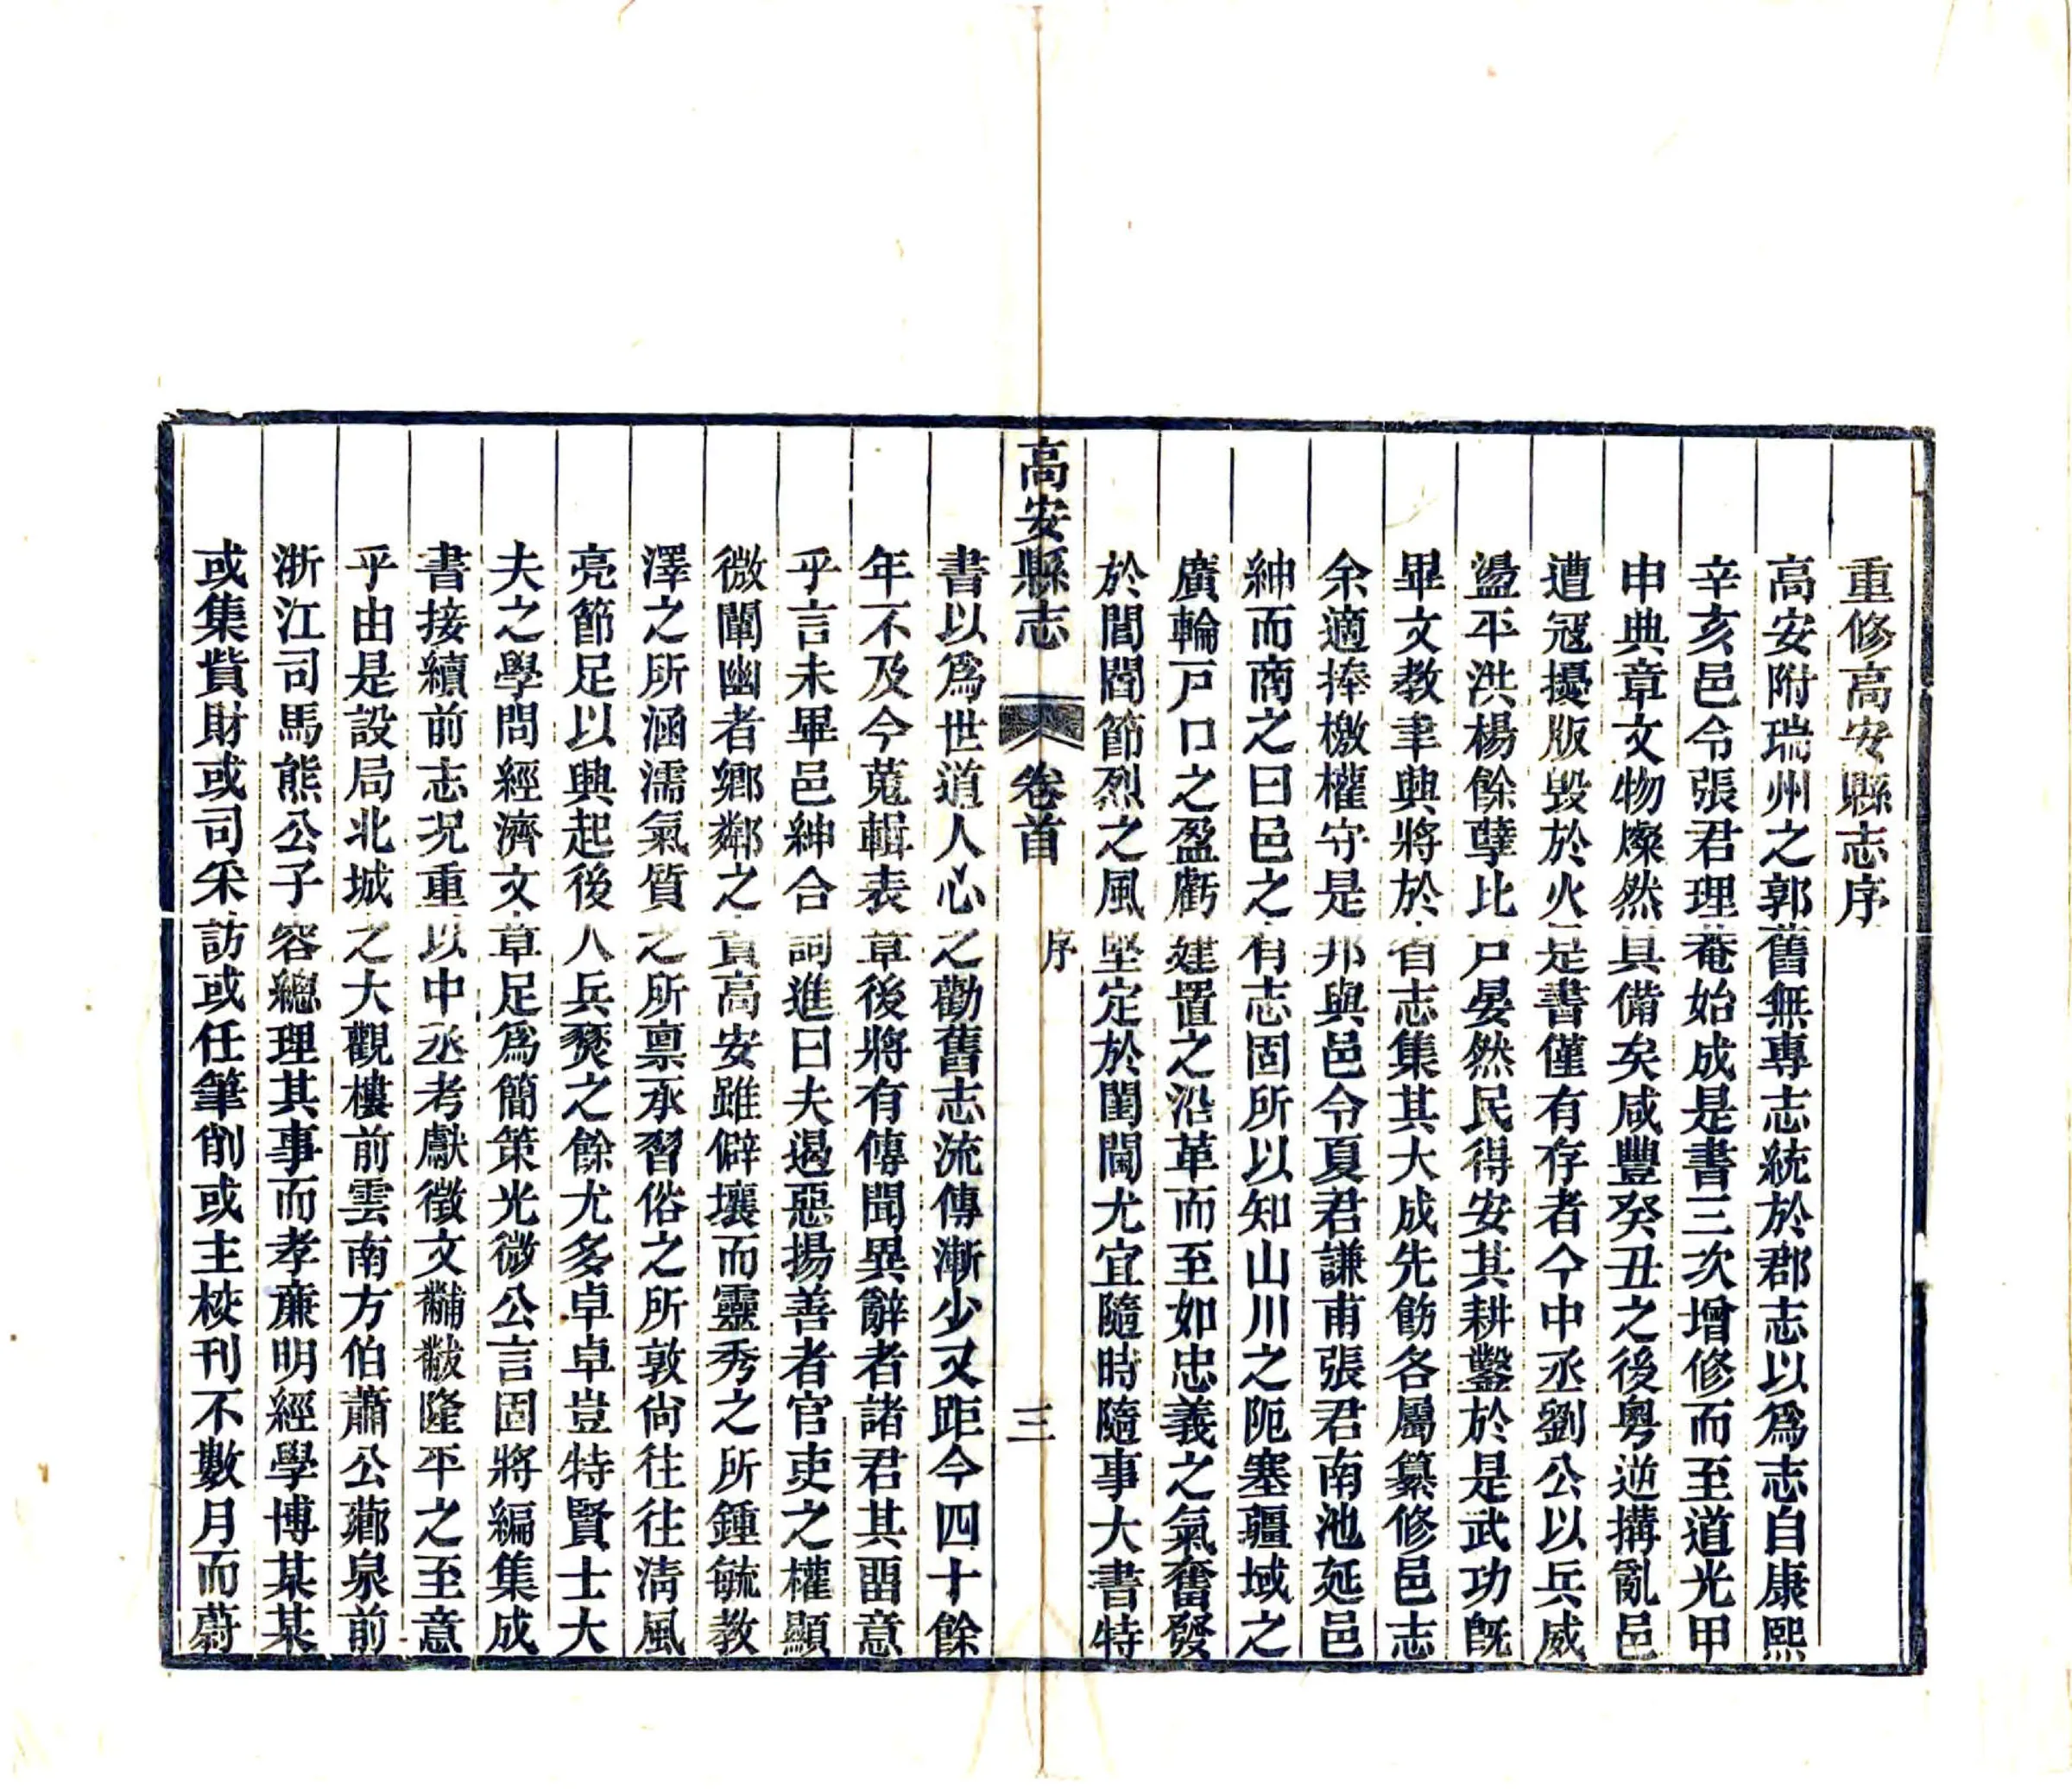 重修高安縣志序
高安附瑞州之郭舊無專志統於郡志以爲志自康熙
辛亥邑令張君理菴始成是書三次增修而至道光甲
申典章文物燦然具備矣咸豐癸丑之後粤逆搆亂邑
遭冦擾版毀於火是書僅有存者今中丞劉公以兵威
盪平洪楊餘孽比戸晏然民得安其耕鑿於是武功既
畢文教聿興將於省志集其大成先飭各屬纂修邑志
余適捧檄權守是邦與邑令夏君謙甫張君南池延邑
紳而商之曰邑之有志固所以知山川之阨塞疆域之
廣輪戸口之盈虧建置之沿革而至如忠義之氣奮發
於閭閻節烈之風堅定於閨閫尤宜隨時隨事大書特
高安縣志 卷首 序 三
書以爲世道人心之勸舊志流傳漸少又距今四十餘
年不及今蒐輯表章後將有傳聞異辭者諸君其畱意
乎言未畢邑紳合詞進曰夫遏惡揚善者官吏之權顯
微闡幽者鄉鄰之責高安雖僻壤而靈秀之所鍾毓教
澤之所涵濡氣質之所禀承習俗之所敦尙往往淸風
亮節足以興起後人兵燹之餘尤多卓卓豈特賢士大
夫之學問經濟文章足爲簡策光微公言固將編集成
書接續前志况重以中丞考獻徵文黼黻隆平之至意
乎由是設局北城之大觀樓前雲南方伯蕭公薌泉前
浙江司馬熊公子容總理其事而孝亷明經學博某某
或集貲財或司采訪或任筆削或主校刊不數月而蔚